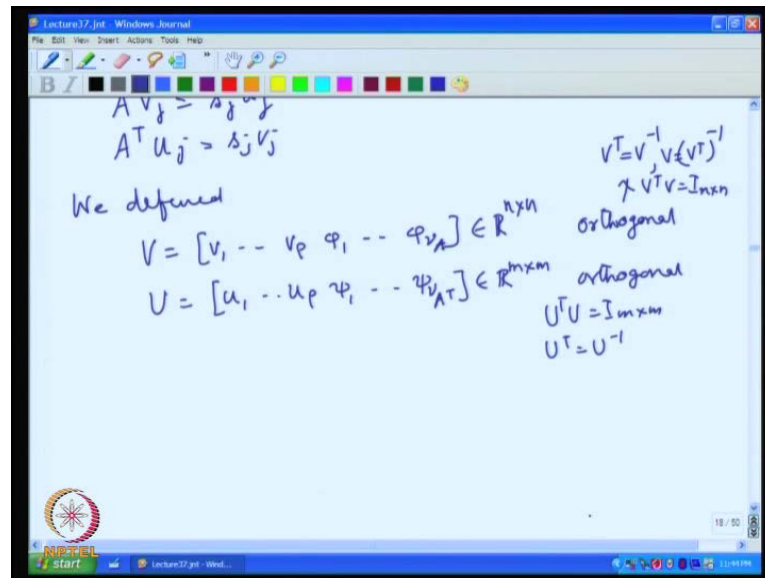 Lecture37.jnt - Windows Journal
File Edit View Insert Actions Tools Help
B I
A v_j = s_j u_j
A^T u_j = s_j v_j
V^T = V^{-1}, V = (V^T)^{-1}
& V^T V = I_{n×n}
We defined
V = [v_1 -- v_ρ φ_1 -- φ_{ν_A}] ∈ ℝ^{n×n} orthogonal
U = [u_1 .. u_ρ ψ_1 -- ψ_{ν_{A^T}}] ∈ ℝ^{m×m} orthogonal
U^T U = I_{m×m}
U^T = U^{-1}
18 / 50
NPTEL
start Lecture37.jnt - Wind... 11:44 PM